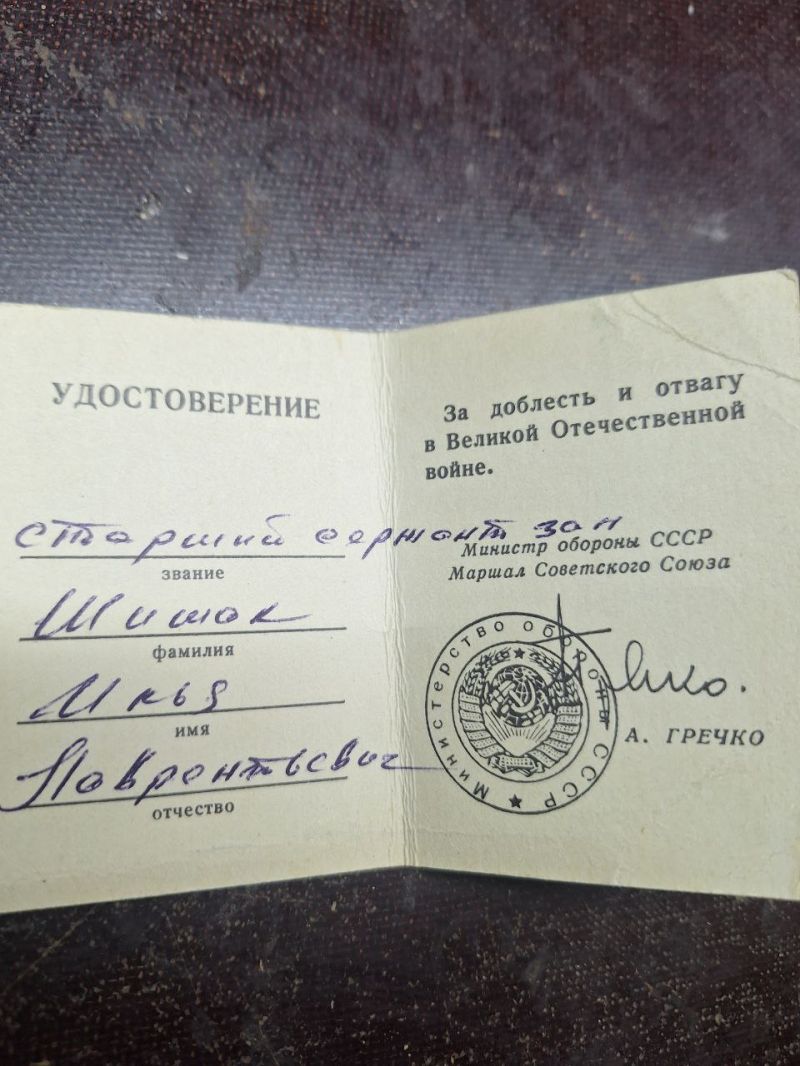 УДОСТОВЕРЕНИЕ
старший сержант зап
звание
Шишак
фамилия
Илья
имя
Лаврентьевич
отчество
За доблесть и отвагу
в Великой Отечественной
войне.
Министр обороны СССР
Маршал Советского Союза
Министерство обороны СССР
А. ГРЕЧКО